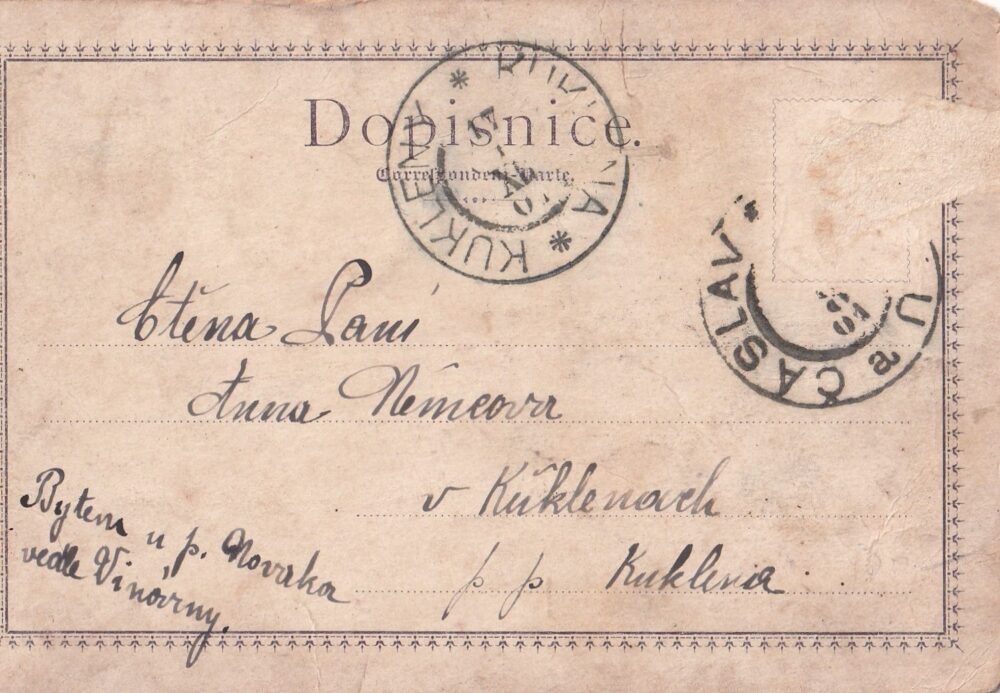 Dopisnice.
Correspondenz-Karte.
KUKLENY * KUKLENA *
ČASLAU
Ctěna Pani
Anna Němcova
v Kůklenach
p p Kuklena
Bytem u p. Novaka
vedle Vinárny.